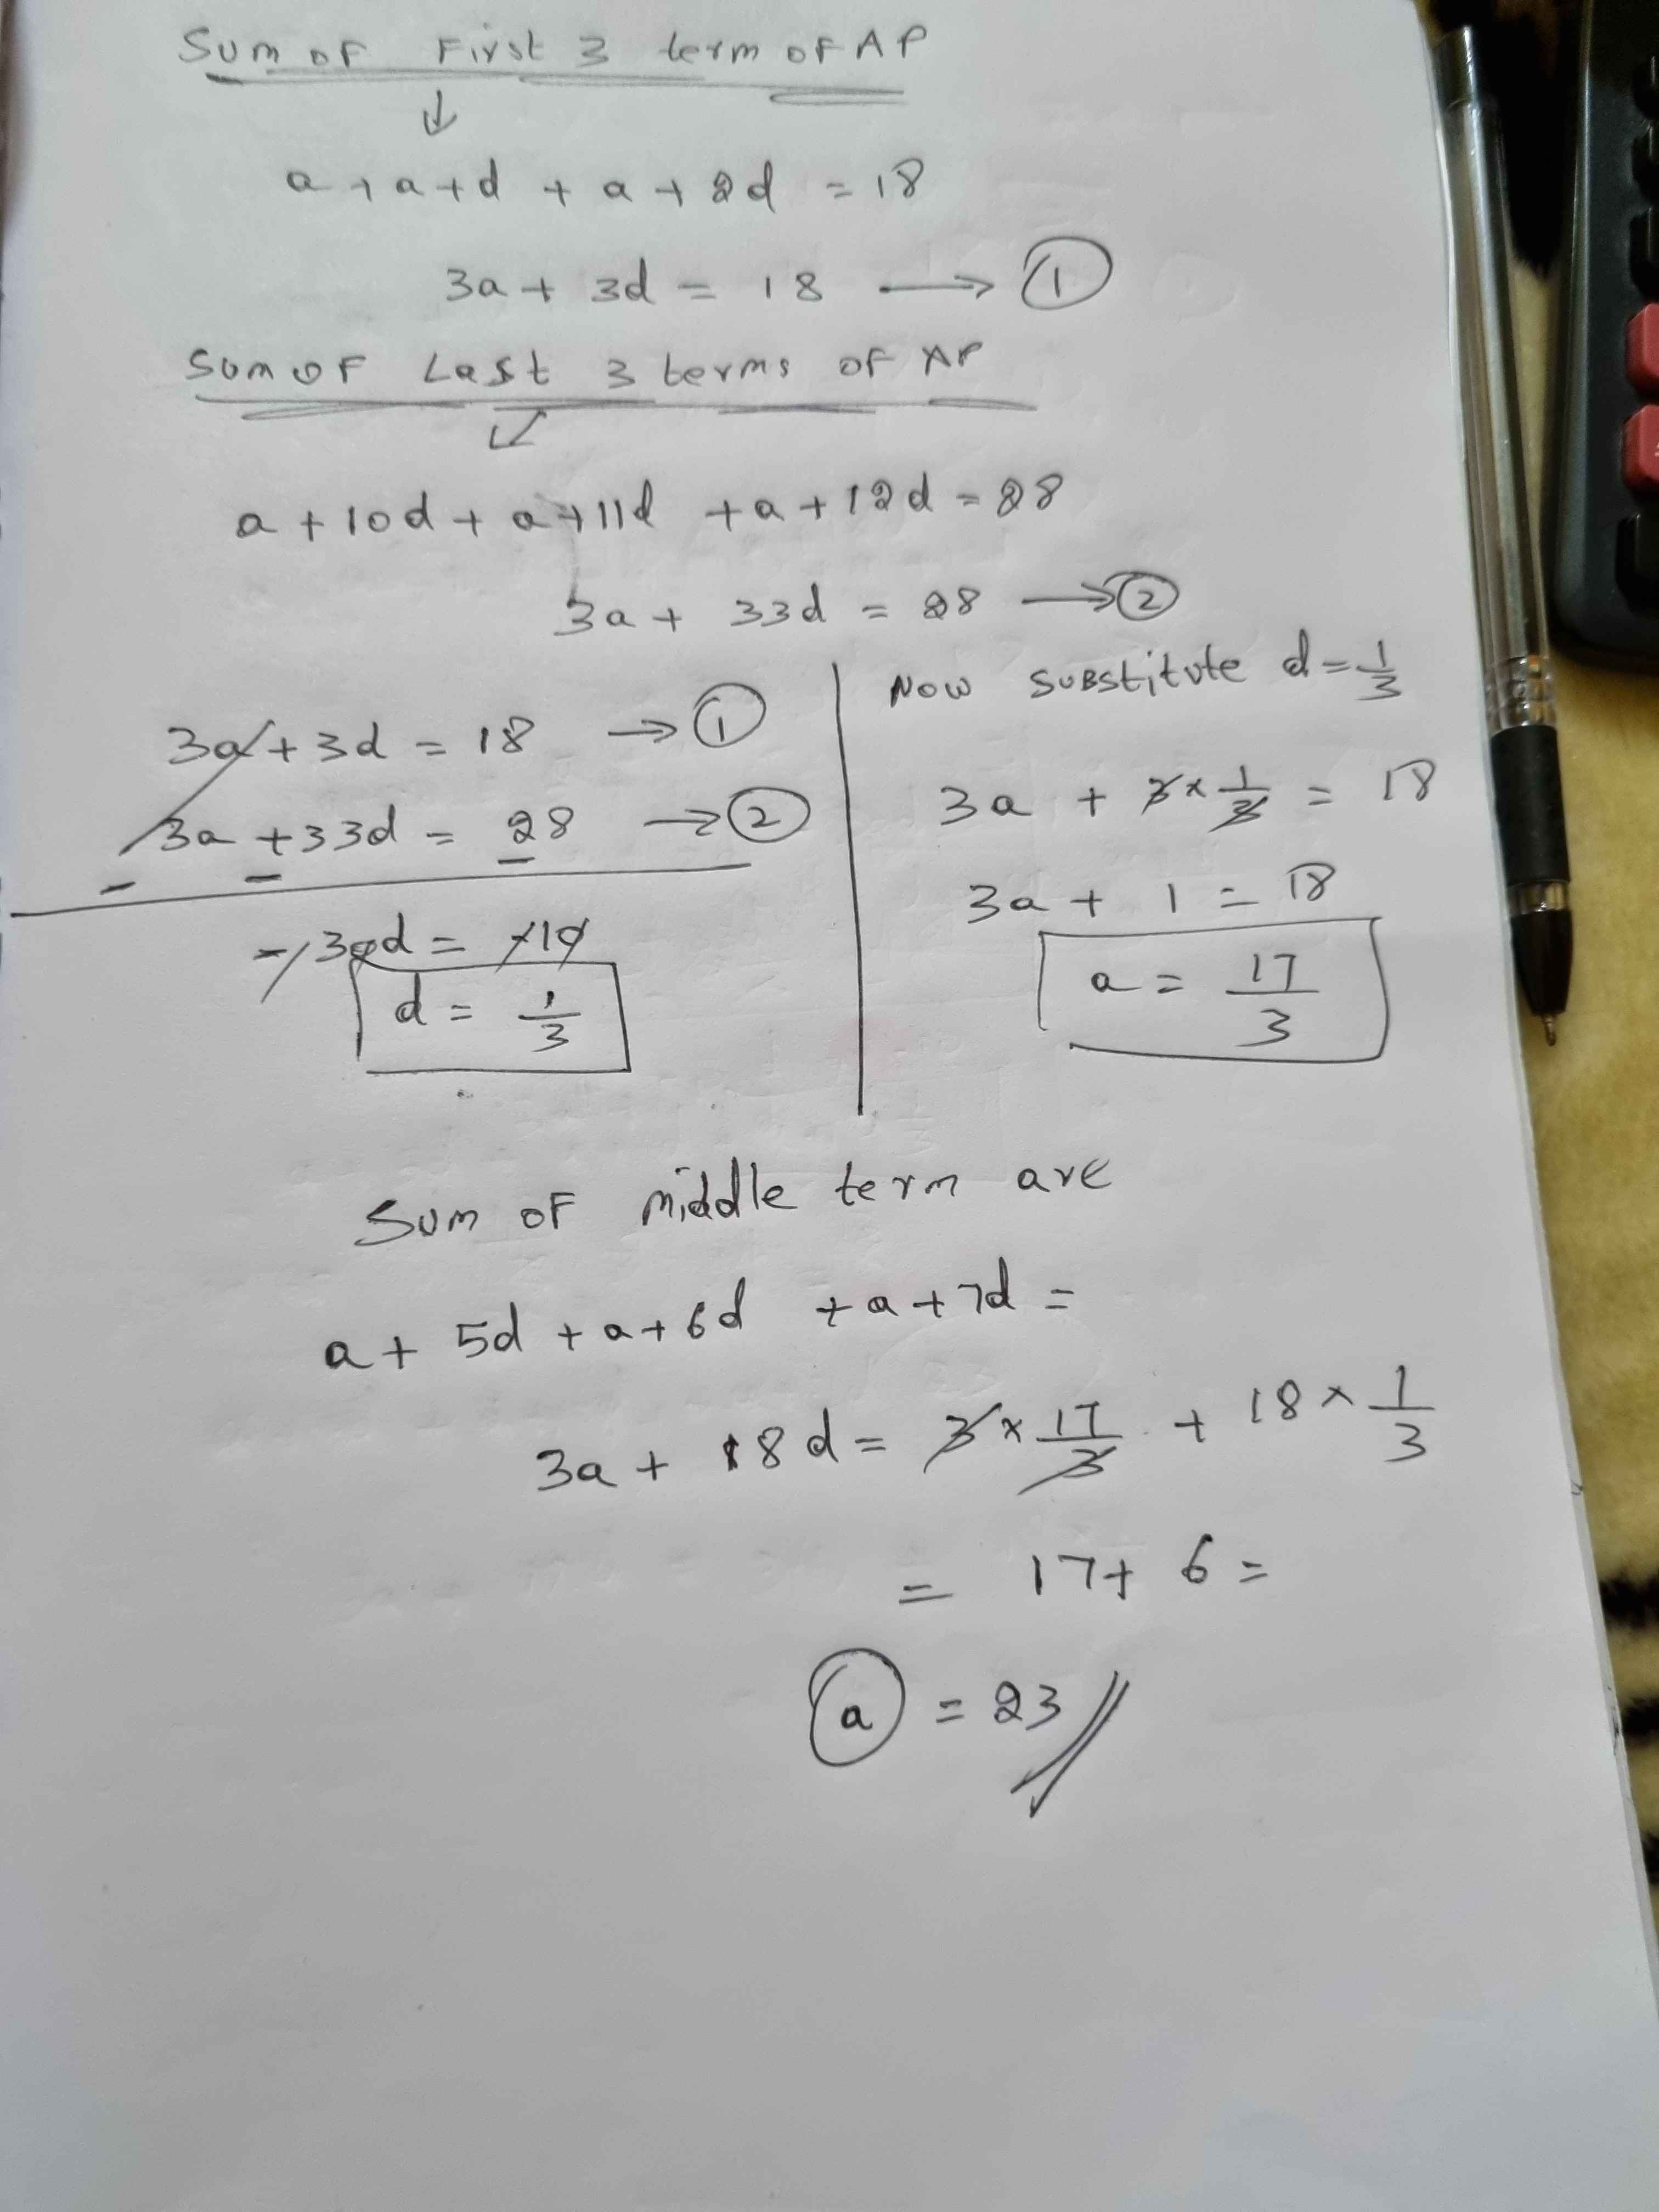 Sum of First 3 term of AP
↓
a + a + d + a + 2d = 18
3a + 3d = 18 → ①
Sum of Last 3 terms of AP
↓
a + 10d + a + 11d + a + 12d = 28
3a + 33d = 28 → ②
3a + 3d = 18 → ①
3a + 33d = 28 → ②
- - -
-30d = -10
d = 1/3
Now substitute d = 1/3
3a + 3 × 1/3 = 18
3a + 1 = 18
a = 17/3
Sum of middle term are
a + 5d + a + 6d + a + 7d =
3a + 18d = 3 × 17/3 + 18 × 1/3
= 17 + 6 =
ⓐ = 23